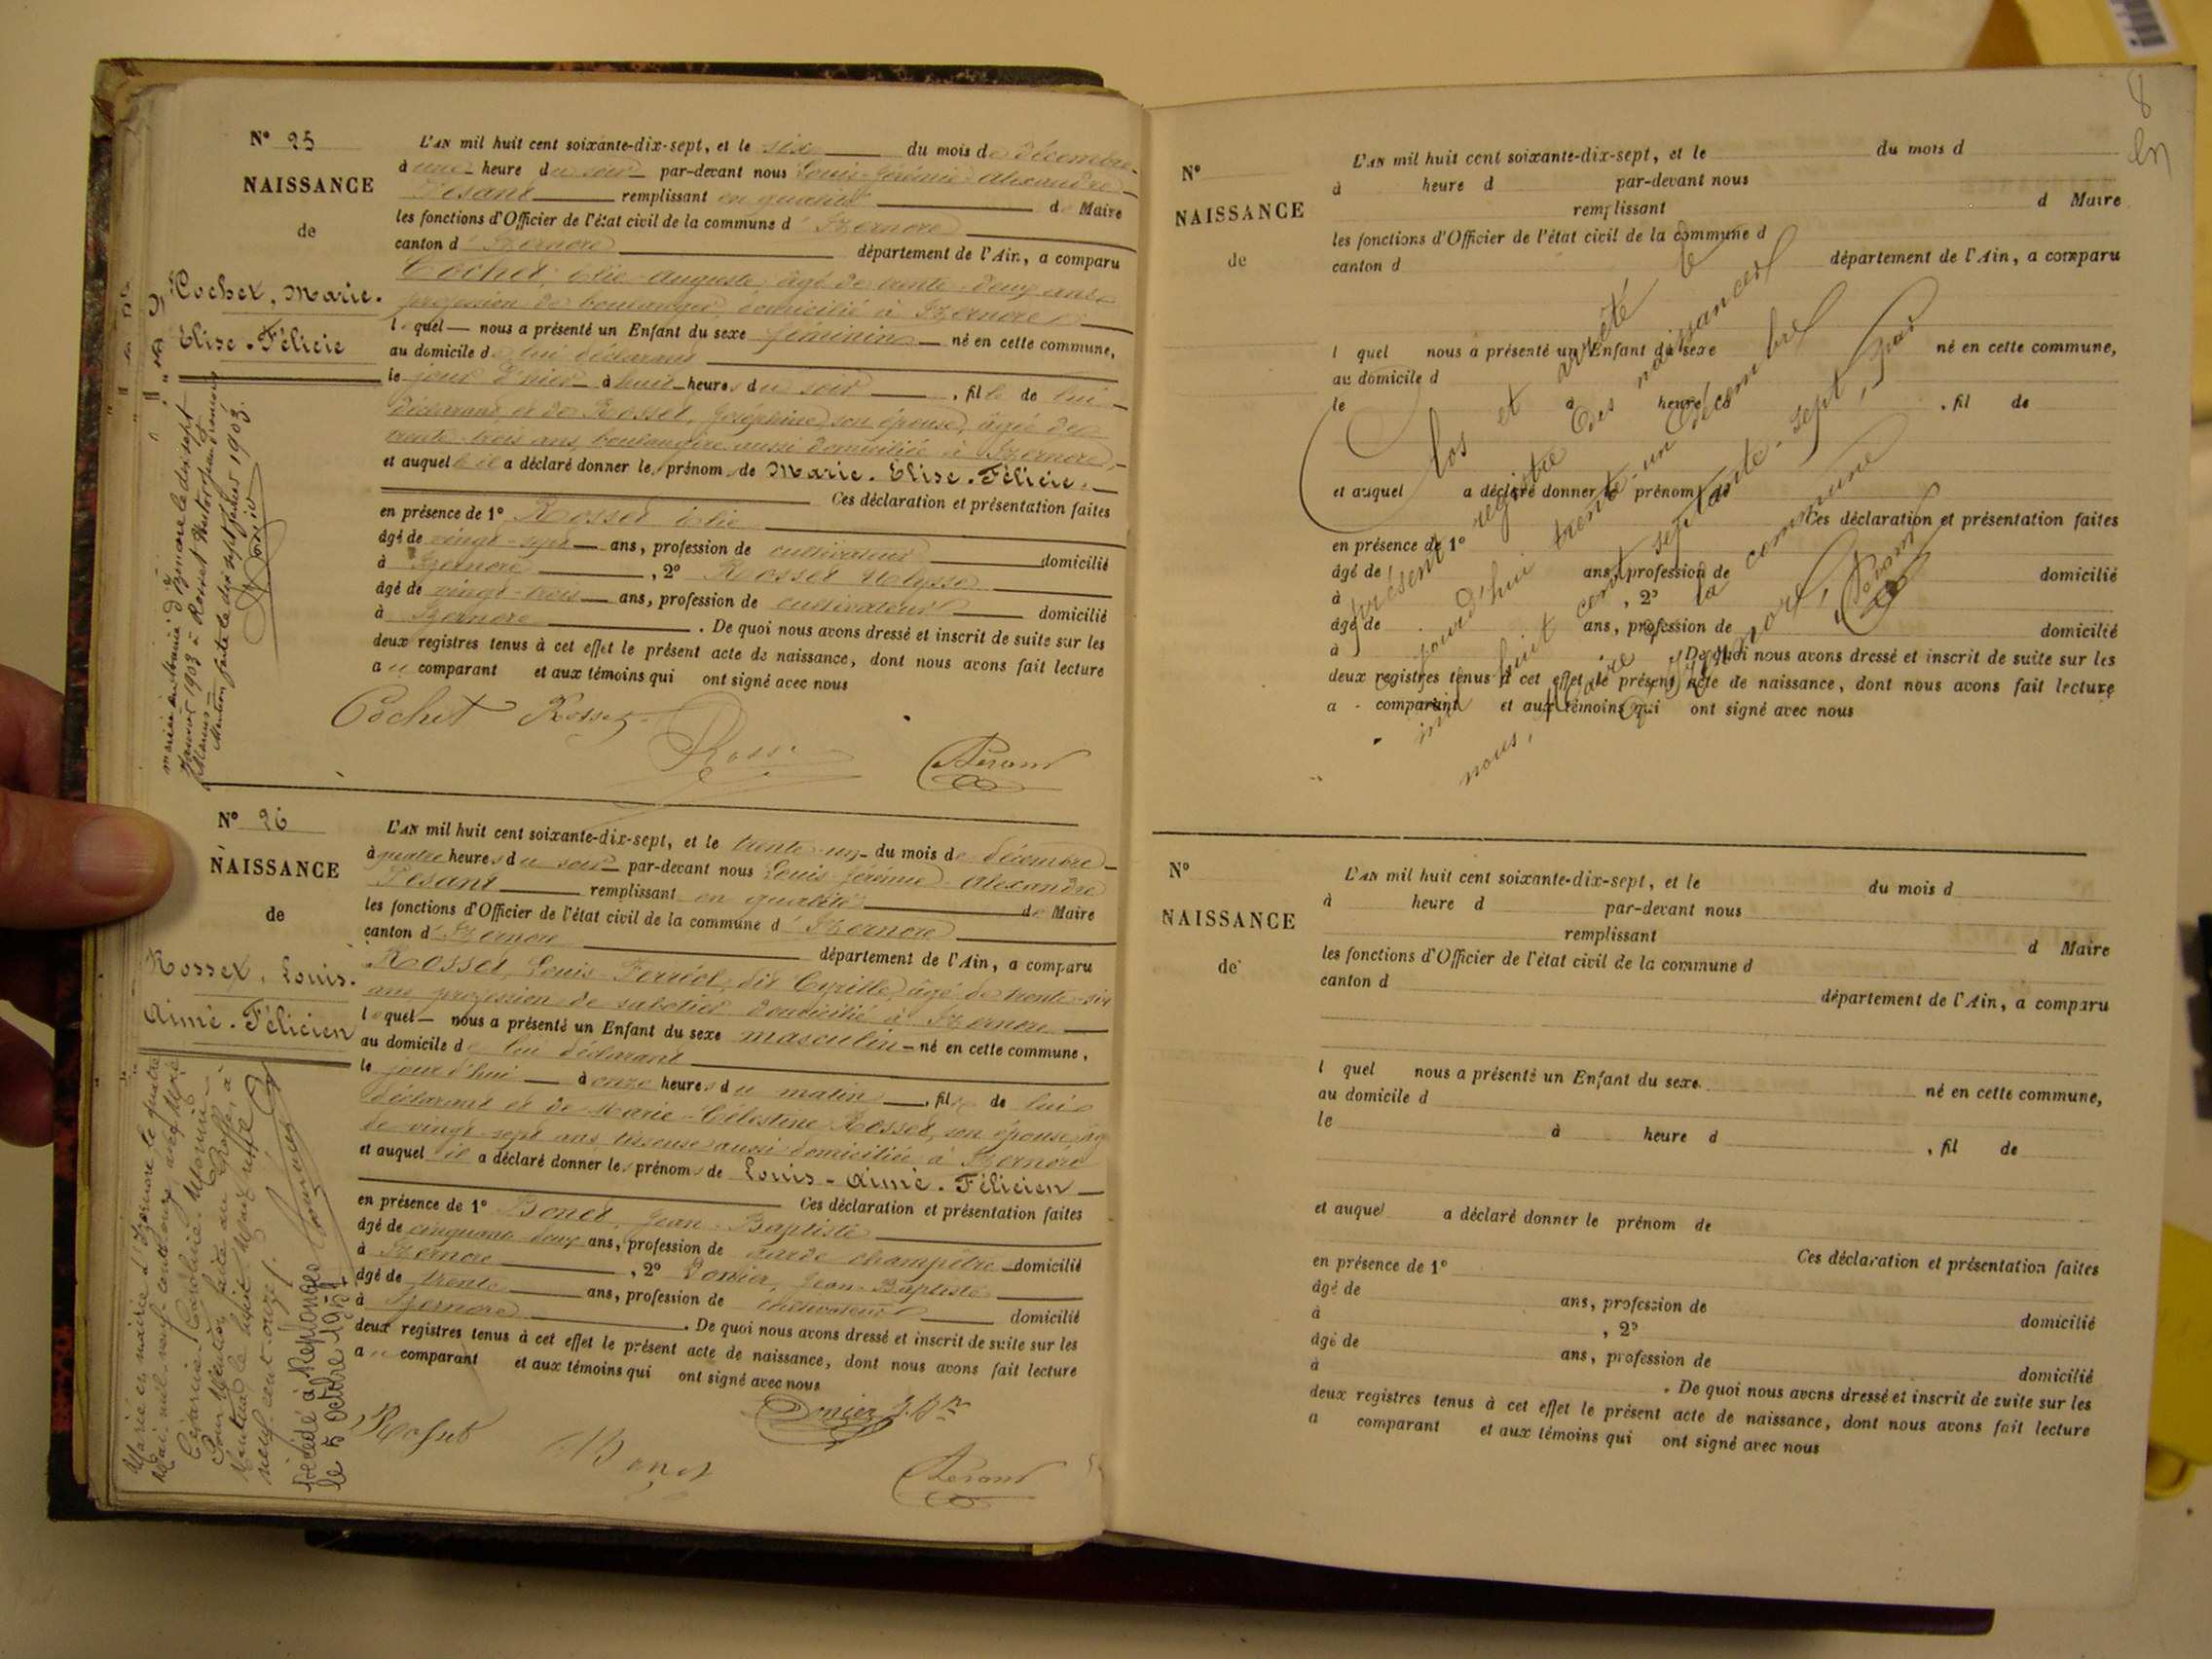 N° 25
NAISSANCE
de
Cochet, Marie.
Elise-Félicie
L'AN mil huit cent soixante-dix-sept, et le six du mois de décembre
à une heure du soir par-devant nous Louis-Jérémie-Alexandre
remplissant en qualité de Maire
les fonctions d'Officier de l'état civil de la commune d'Izernore
canton d'Izernore département de l'Ain, a comparu
Cochet, Elie-Auguste, âgé de trente-deux ans,
profession de boulanger, domicilié à Izernore
lequel nous a présenté un Enfant du sexe féminin né en cette commune,
au domicile de lui déclarant
le jour d'hier à huit heures du soir, fille de lui
déclarant et de Rosset, Joséphine, son épouse, âgée de
trente-trois ans, boulangère aussi domiciliée à Izernore,
et auquel il a déclaré donner les prénoms de Marie-Elise-Félicie.
Ces déclaration et présentation faites
en présence de 1° Rosset Elie
âgé de vingt-sept ans, profession de cultivateur domicilié
à Izernore, 2° Rosset Ulysse
âgé de vingt-trois ans, profession de cultivateur domicilié
à Izernore. De quoi nous avons dressé et inscrit de suite sur les
deux registres tenus à cet effet le présent acte de naissance, dont nous avons fait lecture
au comparant et aux témoins qui ont signé avec nous
Cochet Rosset
N° 26
NAISSANCE
de
Rosset, Louis.
Aimé-Félicien
L'AN mil huit cent soixante-dix-sept, et le trente-un du mois de décembre
à quatre heures du soir par-devant nous Louis-Jérémie-Alexandre
remplissant en qualité de Maire
les fonctions d'Officier de l'état civil de la commune d'Izernore
canton d'Izernore département de l'Ain, a comparu
Rosset, Louis-Ferréol, dit Cyrille, âgé de trente-six
ans, profession de sabotier domicilié à Izernore
lequel nous a présenté un Enfant du sexe masculin né en cette commune,
au domicile de lui déclarant
le jour d'hui à onze heures du matin, fils de lui
déclarant et de Marie-Célestine Rosset, son épouse, âgée
de vingt-sept ans, tisseuse aussi domiciliée à Izernore
et auquel il a déclaré donner les prénoms de Louis-Aimé-Félicien
Ces déclaration et présentation faites
en présence de 1° Bonet, Jean-Baptiste
âgé de cinquante-deux ans, profession de garde champêtre domicilié
à Izernore, 2° Donier, Jean-Baptiste
âgé de trente ans, profession de domicilié
à Izernore. De quoi nous avons dressé et inscrit de suite sur les
deux registres tenus à cet effet le présent acte de naissance, dont nous avons fait lecture
au comparant et aux témoins qui ont signé avec nous
Donier J.B.
Rosset
Bonet
Décédé à Replonges
le 5 octobre
8
N°
NAISSANCE
de
L'AN mil huit cent soixante-dix-sept, et le du mois d
à heure d par-devant nous
remplissant d Maire
les fonctions d'Officier de l'état civil de la commune d
canton d département de l'Ain, a comparu
l quel nous a présenté un Enfant du sexe né en cette commune,
au domicile d
le à heure d , fil de
et auquel a déclaré donner le prénom de
Ces déclaration et présentation faites
en présence de 1°
âgé de ans, profession de domicilié
à , 2°
âgé de ans, profession de domicilié
à . De quoi nous avons dressé et inscrit de suite sur les
deux registres tenus à cet effet le présent acte de naissance, dont nous avons fait lecture
a comparant et aux témoins qui ont signé avec nous
Clos et arrêté le
présent registre des naissances
jourd'hui trente-un décembre
mil huit cent septante-sept, par
nous, Maire de la commune
N°
NAISSANCE
de
L'AN mil huit cent soixante-dix-sept, et le du mois d
à heure d par-devant nous
remplissant d Maire
les fonctions d'Officier de l'état civil de la commune d
canton d département de l'Ain, a comparu
l quel nous a présenté un Enfant du sexe né en cette commune,
au domicile d
le à heure d , fil de
et auquel a déclaré donner le prénom de
Ces déclaration et présentation faites
en présence de 1°
âgé de ans, profession de domicilié
à , 2°
âgé de ans, profession de domicilié
à . De quoi nous avons dressé et inscrit de suite sur les
deux registres tenus à cet effet le présent acte de naissance, dont nous avons fait lecture
a comparant et aux témoins qui ont signé avec nous